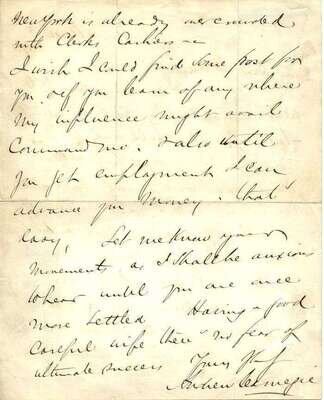 New York is already over crowded
with Clerks Cashiers —
I wish I could find some post for
you. & if you learn of any where
my influence might avail
Command me. & also until
you get employment I can
advance you money. that's
easy, Let me know your
movements as I shall be anxious
to hear until you are once
more settled Having a good
careful wife there's no fear of
ultimate success Yours
Andrew Carnegie